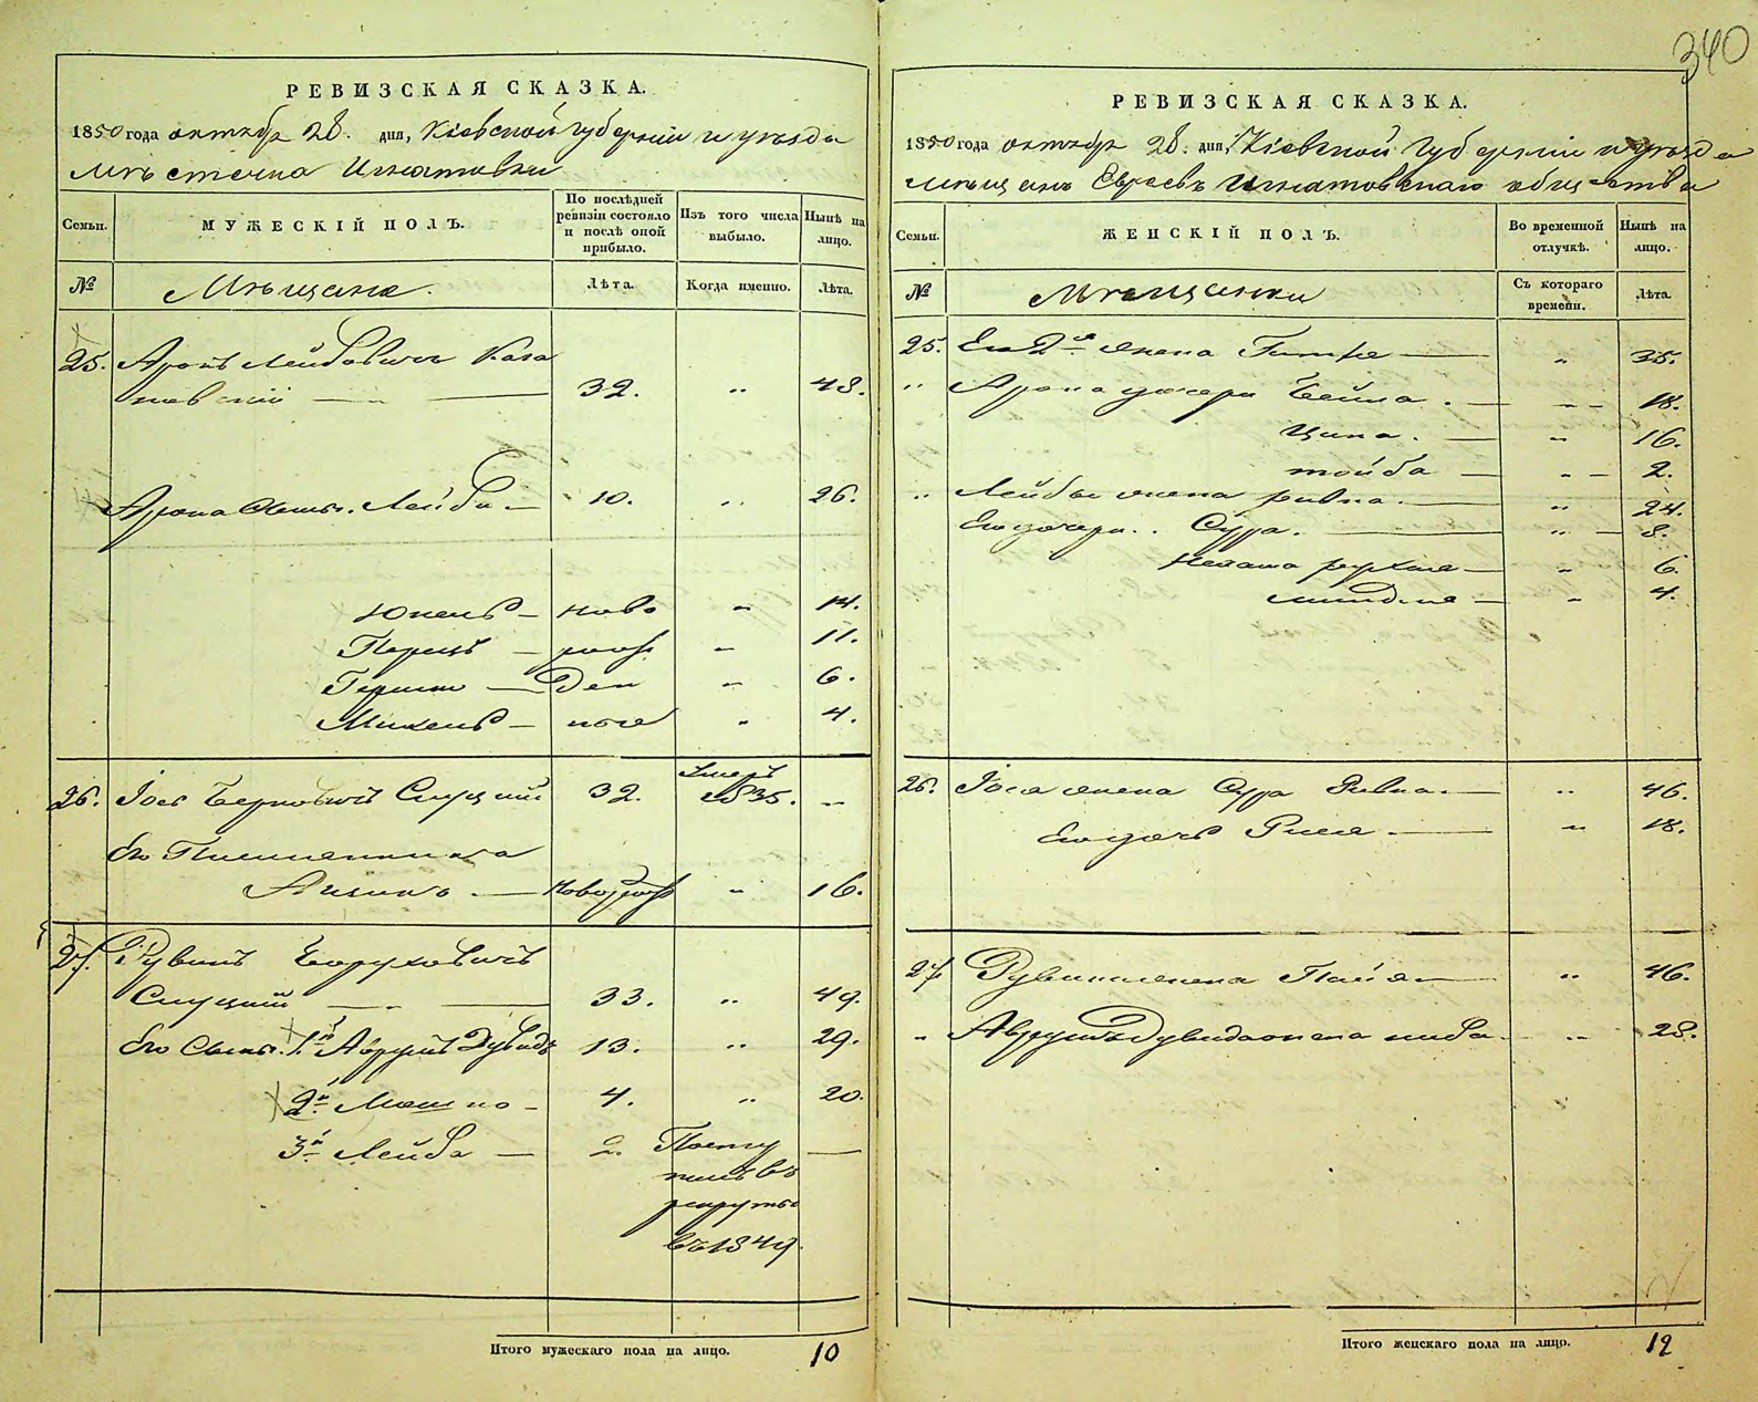 340
РЕВИЗСКАЯ СКАЗКА.
1850 года октября 28. дня, Кіевской Губерніи и уѣзда
Мѣстечка Игнатовки
Семьи.
МУЖЕСКІЙ ПОЛЪ.
По послѣдней ревизіи состояло и послѣ оной прибыло.
Изъ того числа выбыло.
Нынѣ на лицо.
№
Мѣщане.
Лѣта.
Когда именно.
Лѣта.
25. Аронъ Лейбовичъ Кага
новскій 32. „ 48.
Арона сынъ. Лейба 10. „ 26.
Юкель ново „ 14.
Перецъ рож „ 11.
Гершко Ден „ 6.
Михель ные „ 4.
26. Іось Берковичъ Слуцкій 32. Умеръ 1835. „
Его Племянника
Новорож „ 16.
27. Рувинъ Боруховичъ
Слуцкій 33. „ 49.
Его Сынъ. 1й Аврумъ Дувидъ 13. „ 29.
2й Мошко 4. „ 20.
3й Лейба 2. Посту
пилъ въ
рекруты
въ 1849.
Итого мужескаго пола на лицо. 10
РЕВИЗСКАЯ СКАЗКА.
1850 года октября 28. дня, Кіевской Губерніи и уѣзда
Мѣщанъ Евреевъ Игнатовскаго общества
Семьи.
ЖЕНСКІЙ ПОЛЪ.
Во временной отлучкѣ.
Нынѣ на лицо.
№
Мѣщанки
Съ котораго времени.
Лѣта.
25. Его 2я жена „ 35.
„ Арона дочери Бейла „ 18.
Ципа. „ 16.
тойба „ 2.
„ Лейбы жена ривка. „ 24.
Его дочери. Сура. „ 8.
рухля „ 6.
миндля „ 4.
26. Іося жена Сура Ривка. „ 46.
Его дочь „ 18.
27 Рувина жена „ 46.
„ Аврумъ Дувида жена „ 28.
Итого женскаго пола на лицо. 12